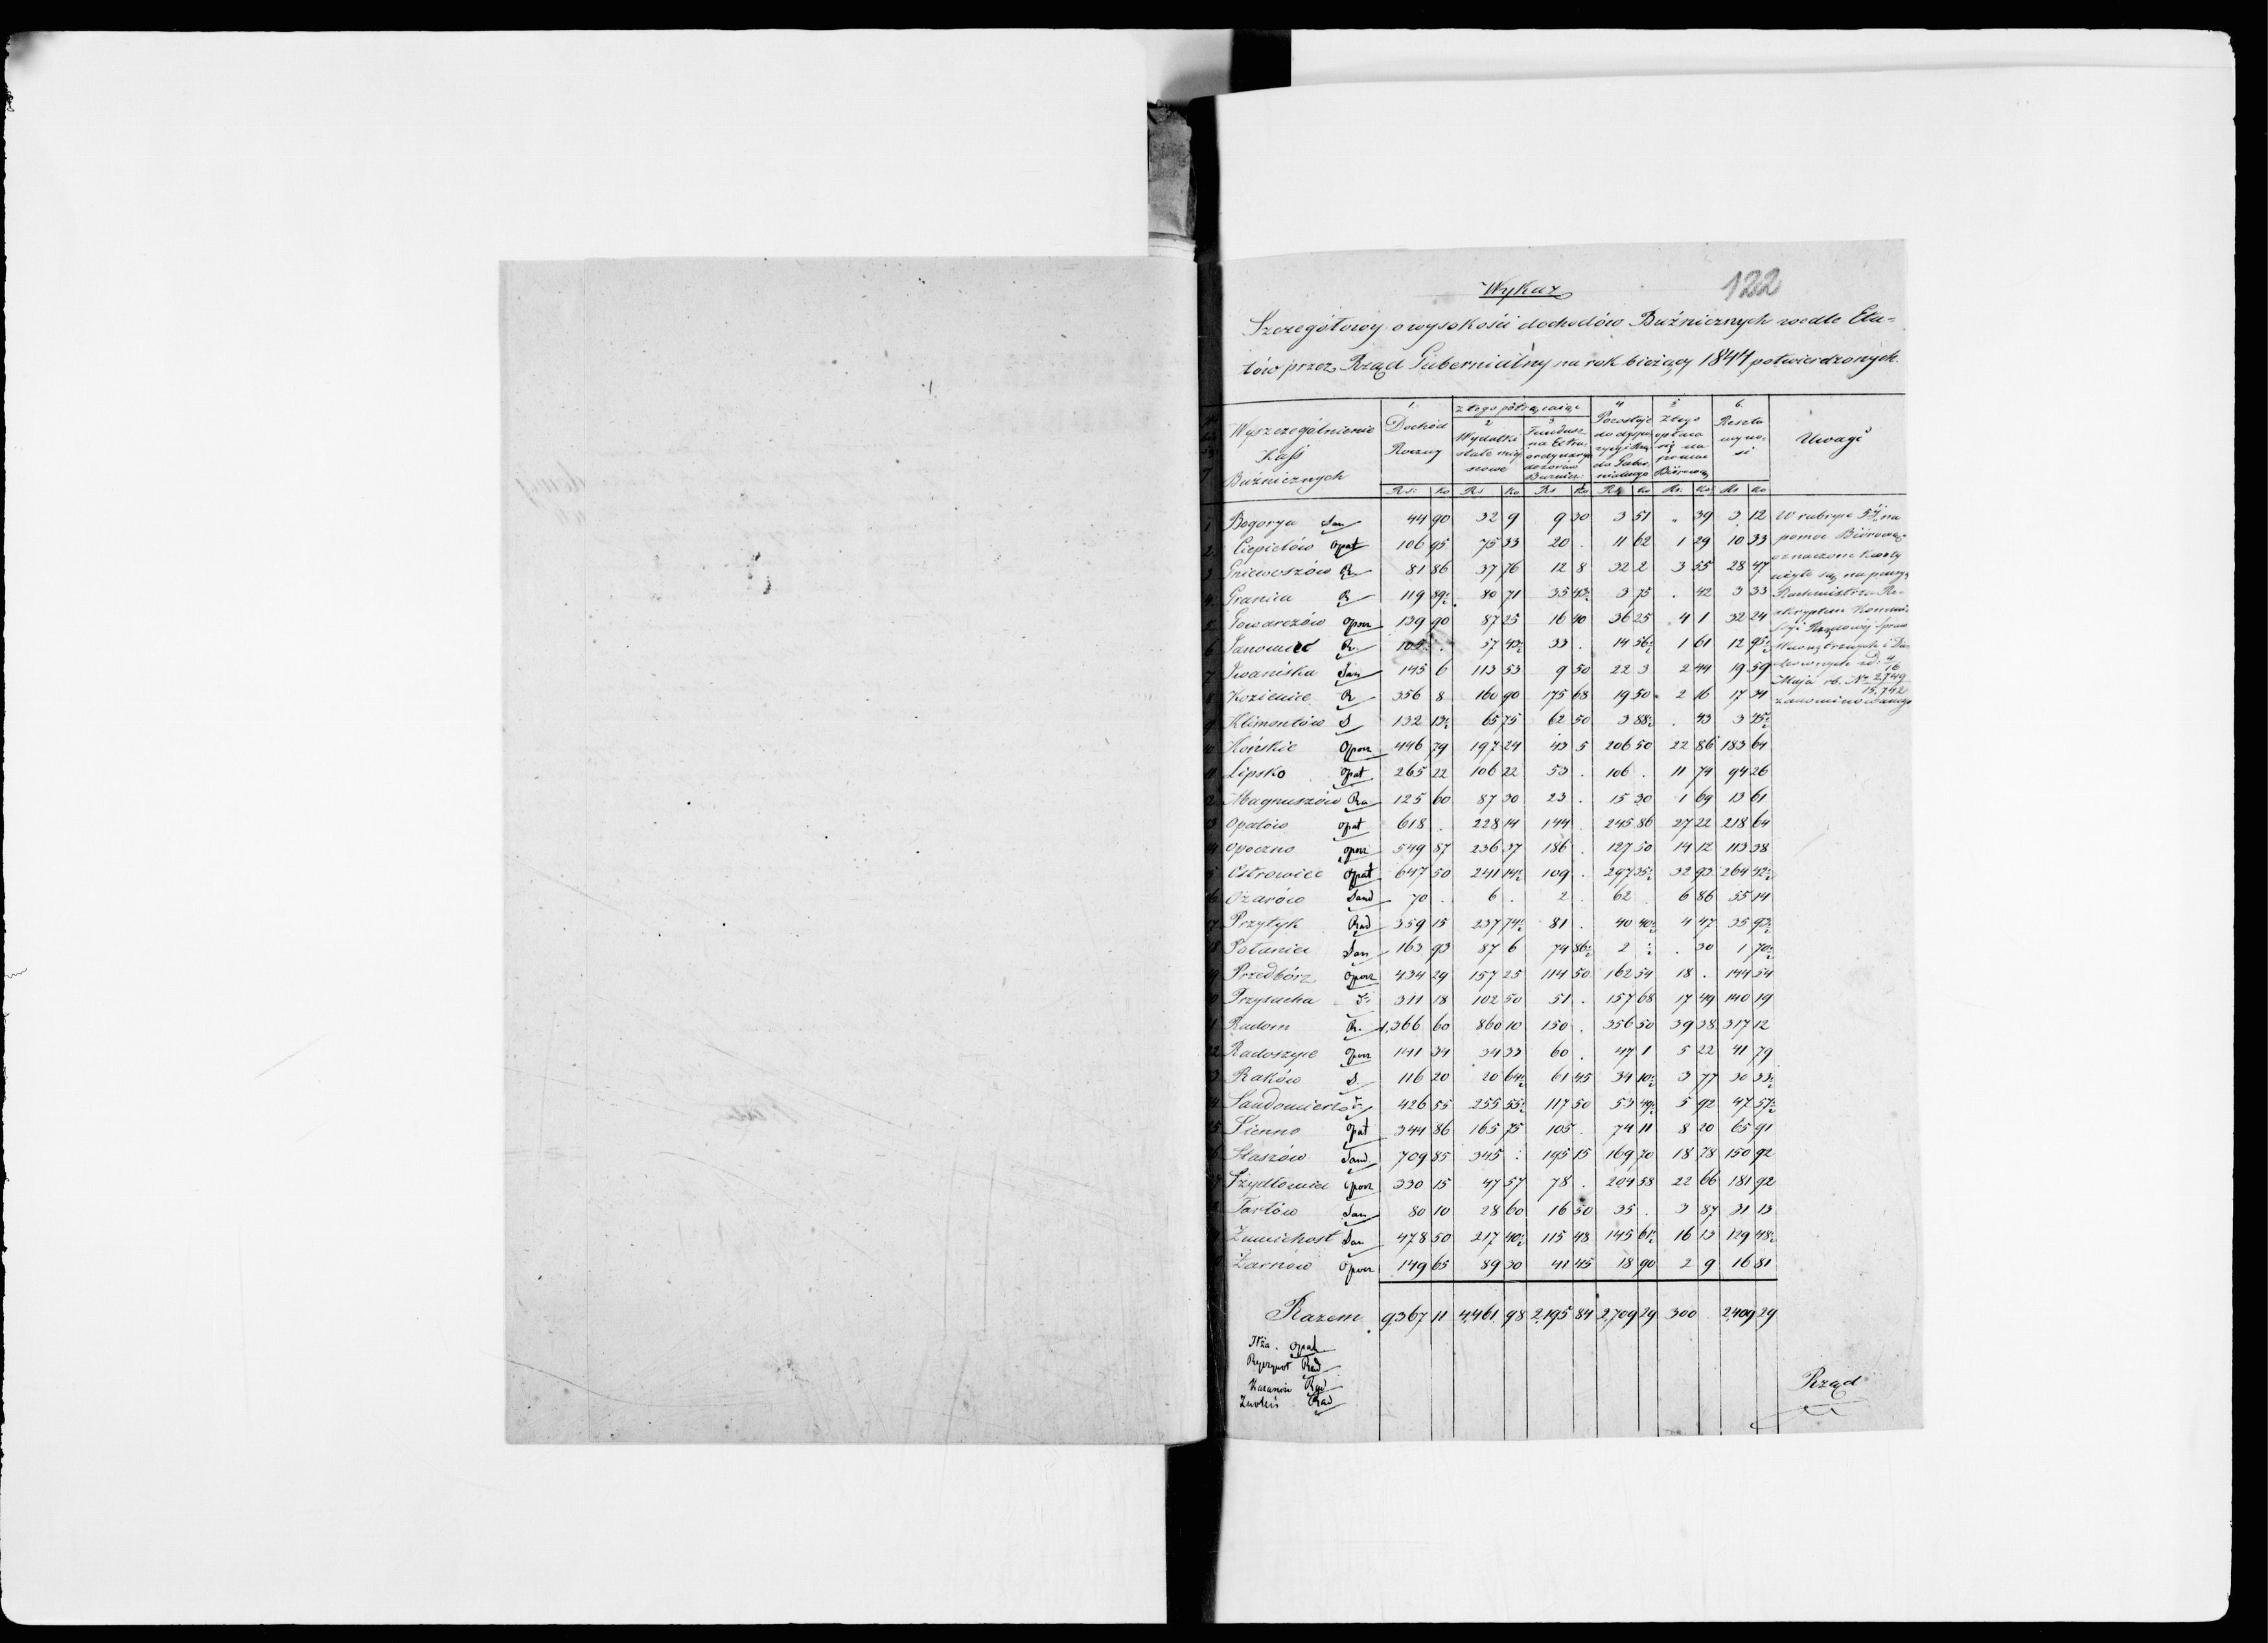 122
Wykaz
Szczegółowy o wysokości dochodów Bużnicznych wedle Eta-
tów przez Rząd Gubernialny na rok bieżący 1844 potwierdzonych.
Wyszczególnienie Kass Bużnicznych | 1. Dochód Roczny | z tego potrącając | 2 Wydatki stałe miejscowe | 3 Fundusz na Extraordynarya dozorów Bużnicz. | 4 Pozostaje do dyspozycyi Rządu Gubernialnego | 5 z tego opłaca się na pomoc Biórową | 6. Reszta wynosi | Uwagi
Rs. | Ko | Rs | Ko | Rs | Ko | Rs | Ko | Rs. | Ko | Rs | Ko
1 Bogorya San 44 90 32 9 9 30 3 51 . 39 3 12
2 Ciepielów Opat 106 95 75 33 20 . 11 62 1 29 10 33
3 Gniewoszów R 81 86 37 76 12 8 32 2 3 55 28 47
4 Granica R 119 89½ 80 71 35 43½ 3 75 . 42 3 33
5 Gowarczów Opocz 139 90 87 25 16 40 36 25 4 1 32 24
6 Janowiec R. 105 . 57 43½ 33 . 14 56½ 1 61 12 95½
7 Iwaniska San 145 6 113 53 9 50 22 3 2 44 19 59
8 Kozienice R 356 8 160 90 175 68 19 50 2 16 17 34
9 Klimontów S 132 13½ 65 75 62 50 3 88½ . 43 3 45½
10 Końskie Opocz 446 79 197 24 43 5 206 50 22 86 183 64
11 Lipsko Opat 265 22 106 22 53 . 106 . 11 74 94 26
12 Magnuszów Ra 125 60 87 30 23 . 15 30 1 69 13 61
13 Opatów Opat 618 . 228 14 144 . 245 86 27 22 218 64
14 Opoczno Opocz 549 87 236 37 186 . 127 50 14 12 113 38
15 Ostrowiec Opat 647 50 241 14½ 109 . 297 35½ 32 93 264 42½
16 Ożarów Sand 70 . 6 . 2 . 62 . 6 86 55 14
17 Przytyk Rad 359 15 237 74½ 81 . 40 40½ 4 47 35 93½
18 Połaniec San 163 93 87 6 74 86½ 2 ½ . 30 1 70½
19 Przedbórz Opocz 434 29 157 25 114 50 162 54 18 . 144 54
20 Przysucha 311 18 102 50 51 . 157 68 17 49 140 19
21 Radom R. 1,366 60 860 10 150 . 356 50 39 38 317 12
22 Radoszyce Opocz 141 34 34 33 60 . 47 1 5 22 41 79
23 Raków S. 116 20 20 64½ 61 45 34 10½ 3 77 30 33½
24 Sandomierz 426 55 255 55½ 117 50 53 49½ 5 92 47 57½
25 Sienno Opat 344 86 165 75 105 . 74 11 8 20 65 91
26 Staszów Sand. 709 85 345 . 195 15 169 70 18 78 150 92
27 Szydłowiec Opocz 330 15 47 57 78 . 204 58 22 66 181 92
28 Tarłów San 80 10 28 60 16 50 35 . 3 87 31 13
29 Zawichost San 478 50 217 40½ 115 48 145 61½ 16 13 129 48½
30 Żarnów Opocz 149 65 89 30 41 45 18 90 2 9 16 81
Razem 9,367 11 4,461 98 2,195 84 2,709 29 300 . 2,409 29
W rubryce 5éj na
pomoc Biórową
oznaczone kwoty
wzięte są na pensyą
Rachmistrza Re-
skryptem Kommis-
syi Rządowéj Spraw
Wewnętrznych i Du-
chownych z d. 4/16
Maja rb. No 2,749/15,742
zanominowanego
Iłża . Opat
Ryczywół Rad
Kazanów Rad
Zwoleń Rad
Rząd